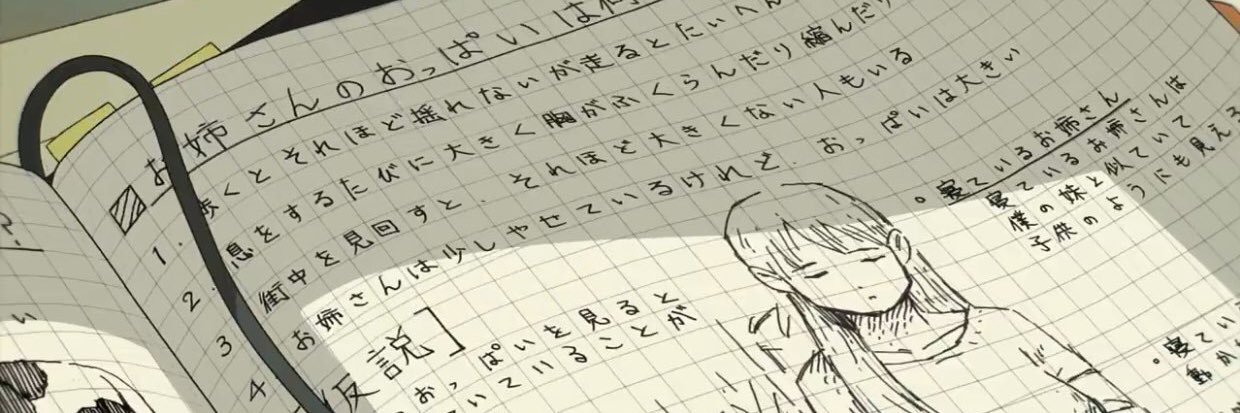 ?
い
お姉さんのおっぱいは何
1. 歩くとそれほど揺れないが走るとたいへん
2. 息をするたびに大きく胸がふくらんだり縮んだり
3 街中を見回すと、それほど大きくない人もいる
4 お姉さんは少しやせているけれど、おっぱいは大きい
仮説]
おっぱいを見ると
いていることが
。寝ているお姉さん
寝ているお姉さんは
僕の妹と似ていて
子供のようにも見える
・寝てい